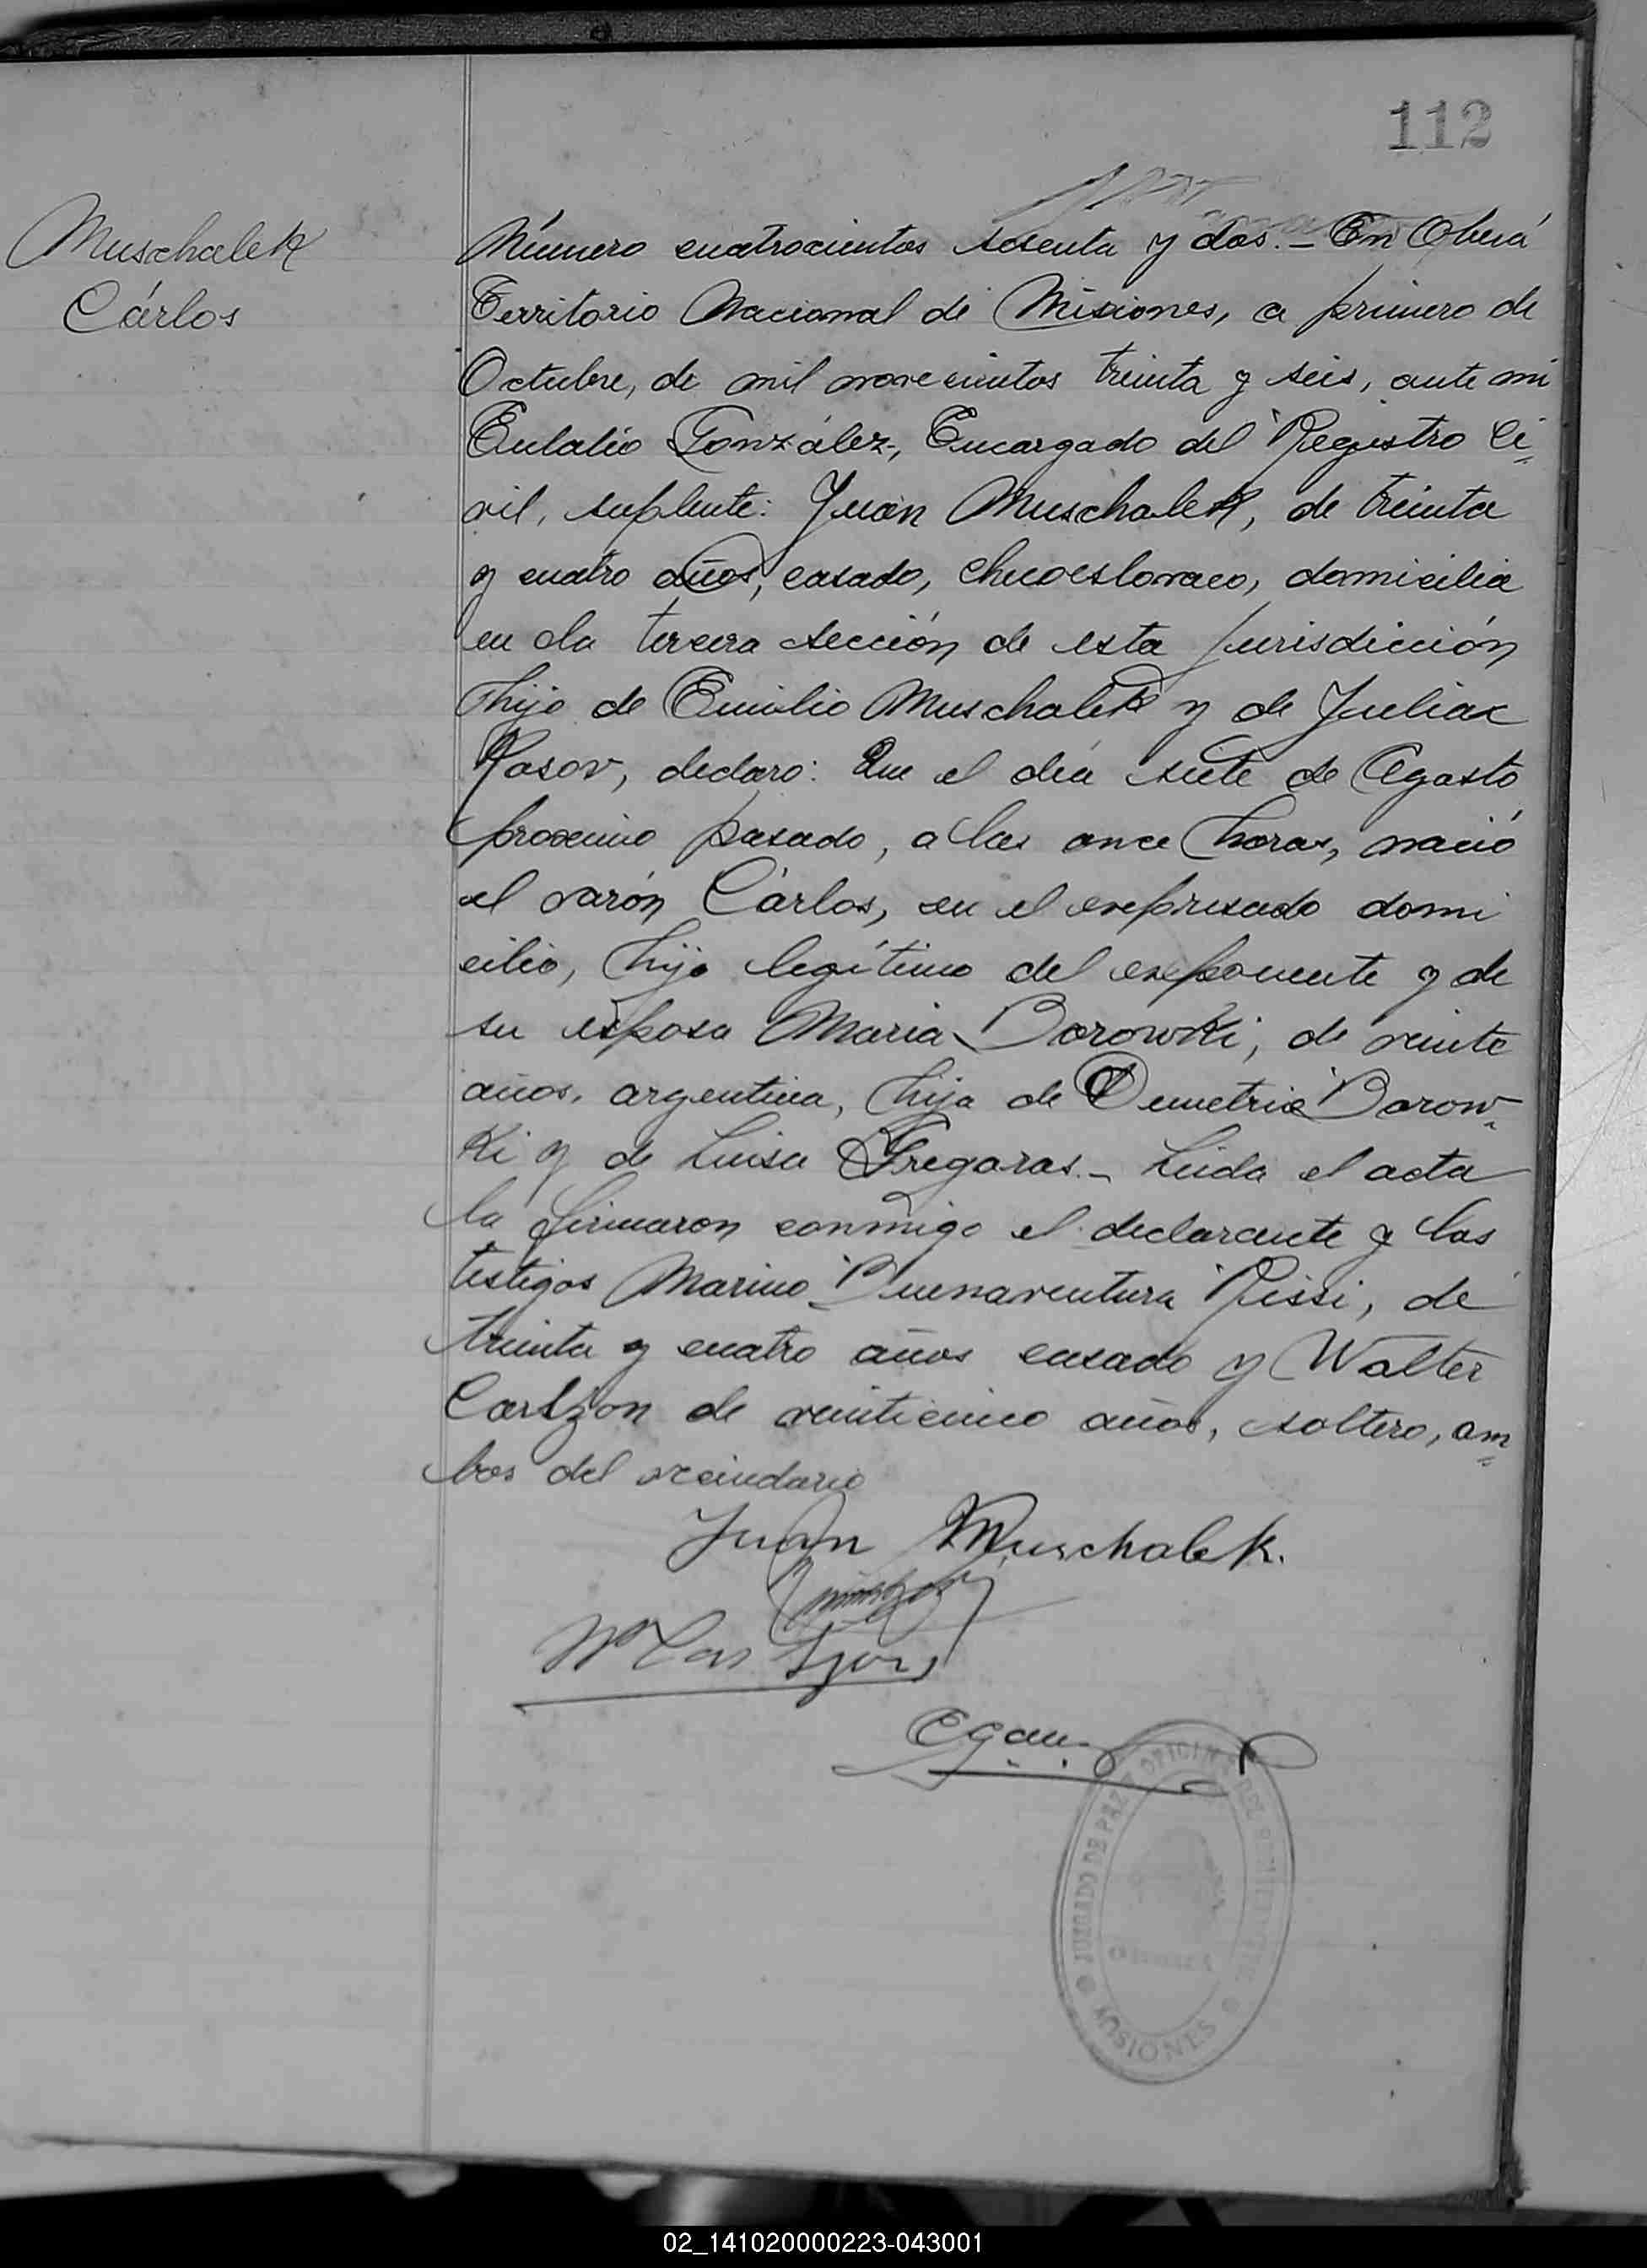 112
Muschalek
Cárlos
Número cuatrocientos sesenta y dos.- En Oberá
Territorio Nacional de Misiones, a primero de
Octubre, de mil novecientos treinta y seis, ante mi
Eulalio González, Encargado del Registro Ci-
vil, suplente: Juan Muschalek, de treinta
y cuatro años, casado, checoeslovaco, domicilia
en la tercera sección de esta jurisdicción
hijo de Emilio Muschalek y de Julia
Rosov, declaro: Que el día siete de Agosto
proximo pasado, a las once horas, nació
el varón Cárlos, en el expresado domi
cilio, hijo legítimo del exponente y de
su esposa Maria Borowki, de veinte
años, argentina, hija de Demetrio Borow-
ki y de Luisa Gregoras.- Leida el acta
la firmaron conmigo el declarante y los
testigos Marino Buenaventura Rissi, de
treinta y cuatro años casado y Walter
Carlzon de veinticinco años, soltero, am
bos del vecindario
Juan Muschalek.
JUZGADO DE PAZ OFICINA DEL REGISTRO CIVIL
MISIONES
02_141020000223-043001